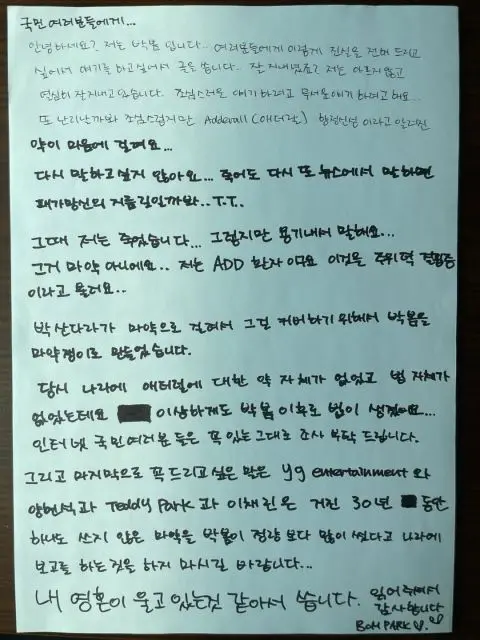 국민 여러분들에게...
안녕하세요? 저는 박봄 입니다.. 여러분들에게 이렇게 진실을 전해 드리고
싶어서 얘기를 하고싶어서 글을 씁니다.. 잘 지내셨죠? 저는 아프지 않고
열심히 잘지내고 있습니다. 조심스러운 얘기 하려고 무서운 얘기 하려고 해요...
또 난리난까봐 조심스럽지만 Adderall (애더럴) 향정신성 이라고 알려진
약이 마음에 걸려요...
다시 말하고싶지 않아요... 죽어도 다시 또 뉴스에서 말하면
패가망신의 지름길일까봐..T.T..
그때 저는 죽었습니다... 그렇지만 용기내서 말해요...
그거 마약 아니에요.. 저는 ADD 환자 이고요 이것을 주위력 결핍증
이라고 불러요..
박산다라가 마약으로 걸려서 그걸 커버하기 위해서 박봄을
마약쟁이로 만들었습니다.
당시 나라에 애터럴에 대한 약 자체가 없었고 법 자체가
없었는데요 이상하게도 박봄 이후로 법이 생겼어요...
인터넷 국민여러분 들은 꼭 있는그대로 조사 부탁 드립니다.
그리고 마지막으로 꼭 드리고 싶은 말은 yg entertainment 와
양현석과 Teddy Park 과 이채린 은 거진 30년 동안
하나도 쓰지 않은 마약을 박봄이 정량 보다 많이 썼다고 나라에
보고를 하는것을 하지 마시길 바랍니다...
내 영혼이 울고 있는것 같아서 씁니다. 읽어 주셔서
감사합니다
BOM PARK ♡.♡